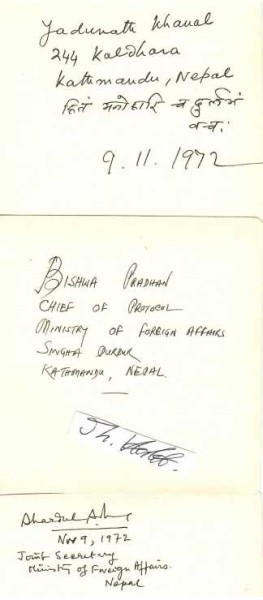 Yadunath Khanal
244 Kaldhara
Kathmandu, Nepal
हितं मनोहारि च दुर्लभं
वचः
9.11.1972
BISHWA PRADHAN
CHIEF OF PROTOCOL
MINISTRY OF FOREIGN AFFAIRS
SINGHA DURBUR
KATHMANDU, NEPAL
Th.
Nov 9, 1972
Joint Secretary
Ministry of Foreign Affairs.
Nepal